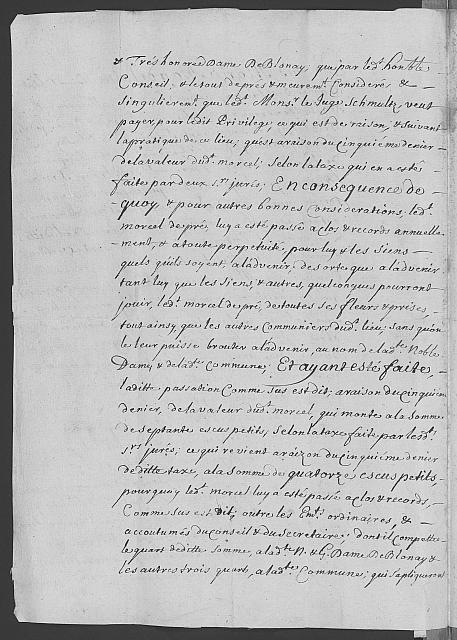 & Trés honorée Dame De Blonay, que par led.t hon.ble
Conseil; & le tous de prés & meurem.t Consideré &
singulierem.t que led.t Mons.r le Juge Schmultz, veut
payer, pour ledit Privilege, ce qui est de raison, & suivant
la pratique de ce lieu; qu'est a raison du cinquieme denier
de la valeur dud.t morcel; selon la taxe qui en a estés
faite par deux s.rs jurés; En consequence de
quoy, & pour autres bonnes Considerations, led.t
morcel de pré, luy a esté passé a clos & records annuelle
ment, & a toute perpetuité, pour luy & les siens
quels quils soyent, a l'advenir, de sorte que a l'advenir
tant luy que les siens, & autres, quelconques pourront
jouir, led.t morcel de pré, de toutes ses fleurs & prises,
tout ainsy, que les autres Communiers dud.t lieu; sans qu'on
le leur puisse brouter a l'advenir, au nom de lad.te Noble
Dame & de lad.te Commune; Et ayant esté faite,
laditte passation Comme sus est dit; a raison du cinquieme
denier, de la valeur dud.t morcel, qui monte a la somme
de septante escus petits; selon la taxe faite par lesd.ts
s.rs jurés; ce qui revient a raizon du cinquieme denier
de ditte taxe, a la somme de quatorze escus petits
pourquoy led.t morcel luy a esté passé a clos & records,
Comme sus est Dit; outre les Em.ts ordinaires, &
accoutumés du Conseil & du secretaire; dont il compette
le quart de ditte somme, a lad.te N. & G. Dame De Blonay &
les autres trois quarts, a lad.te Commune; qui s'apliqueront